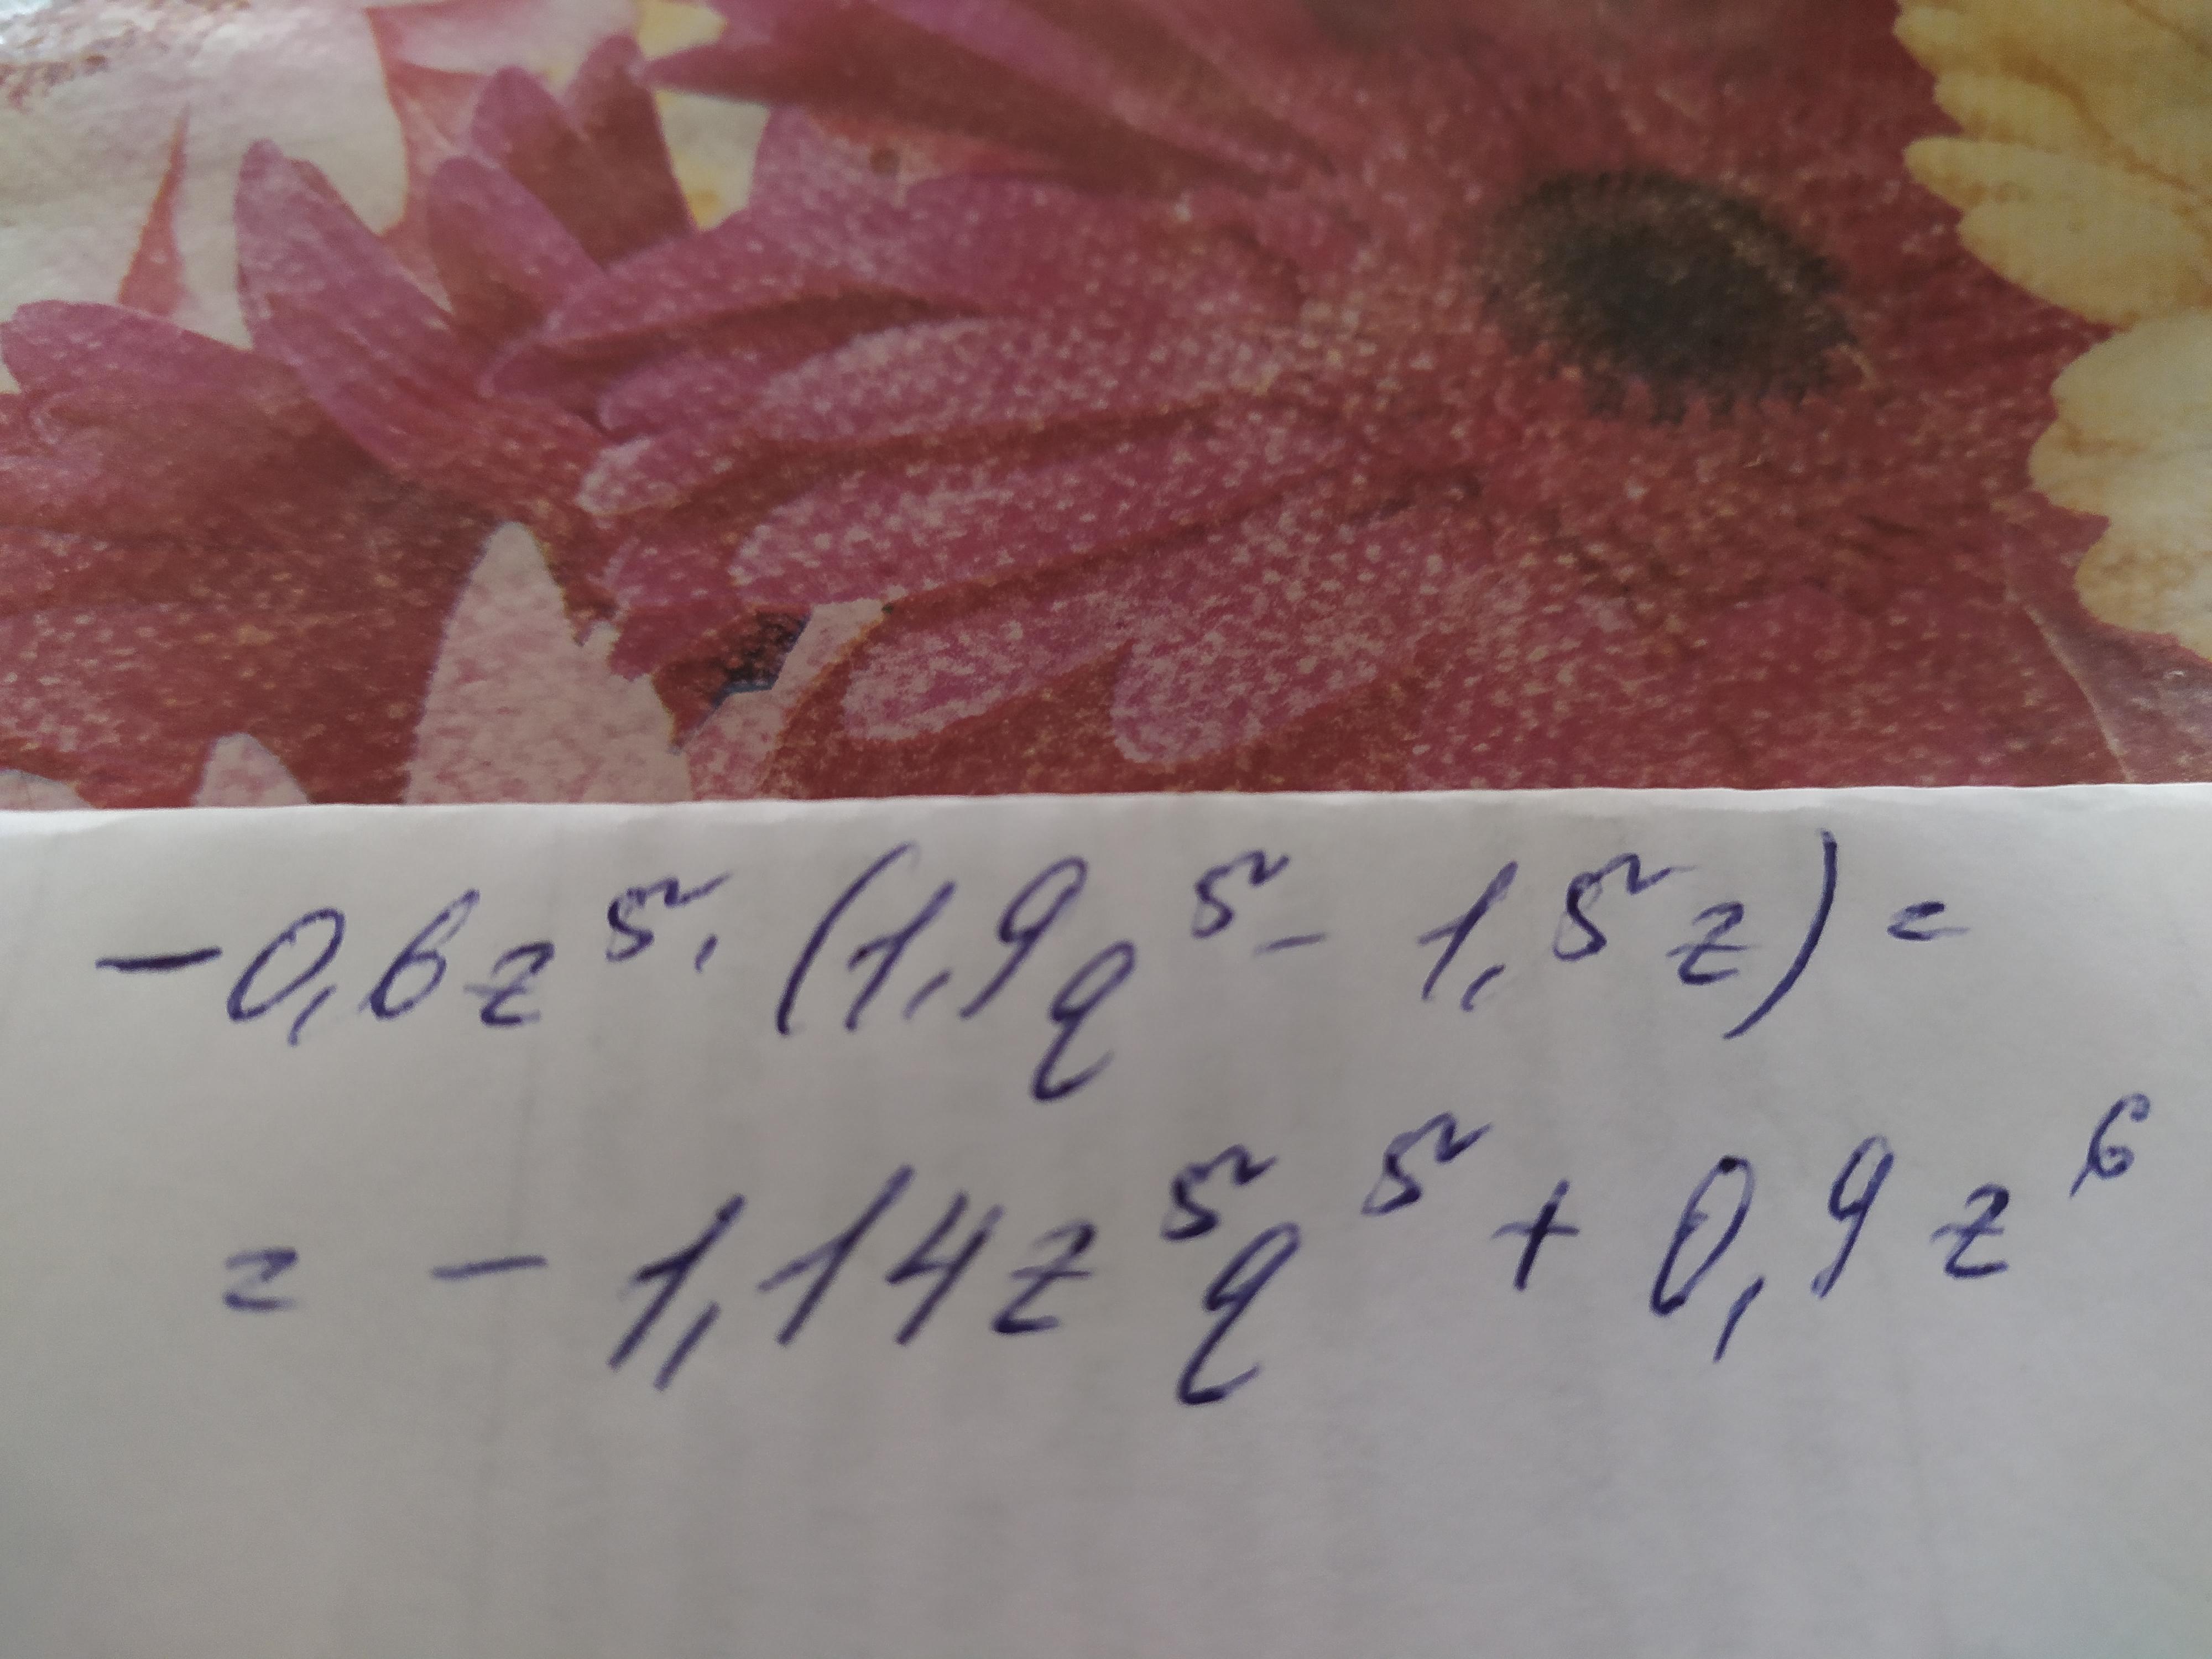 -0,6z⁵·(1,9q⁵-1,5z)=
=-1,14z⁵q⁵+0,9z⁶